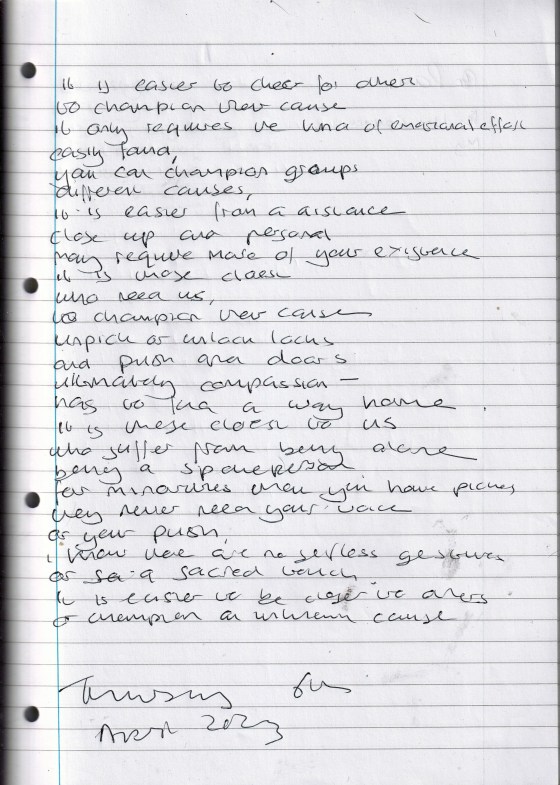 it is easier to cheer for others
to champion their cause
it only requires the kind of emotional effort
easily found,
you can champion groups
different causes,
it is easier from a distance
close up and personal
may require more of your existence
it is those closest
who need us,
to champion their causes
unpick or unlock locks
and push open doors
ultimately compassion –
has to find a way home.
it is those closest to us
who suffer from being alone
being a spokesperson
for minorities when you have picked
they never need your voice
or your push,
i know there are no selfless gestures
or a sacred touch.
it is easier to be closer to others
to champion an unknown cause
Thursday 6th
April 2023